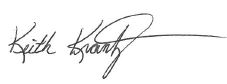 Keith Krantz